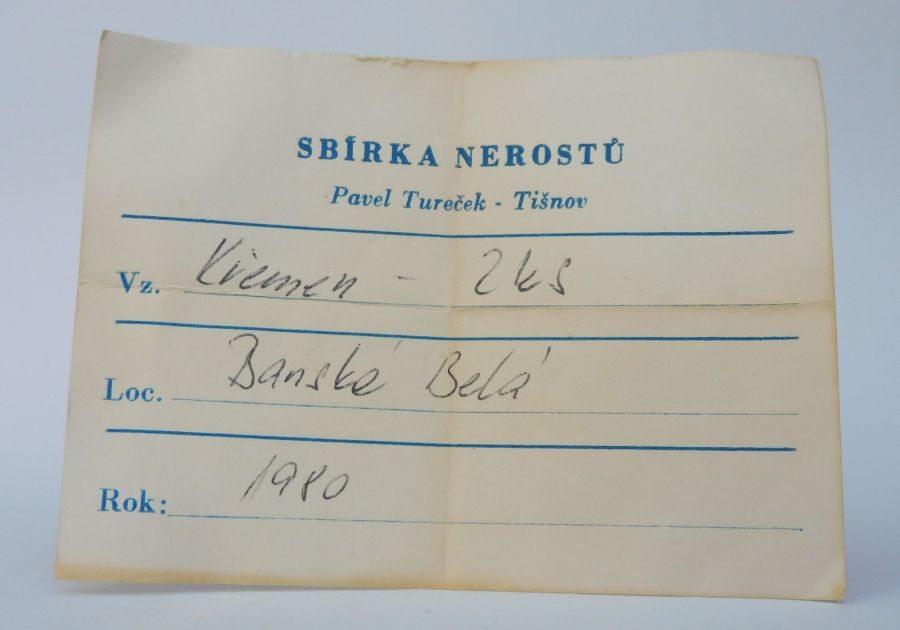 SBÍRKA NEROSTŮ
Pavel Tureček - Tišnov
Vz. Křemen - 2ks
Loc. Banská Belá
Rok: 1980